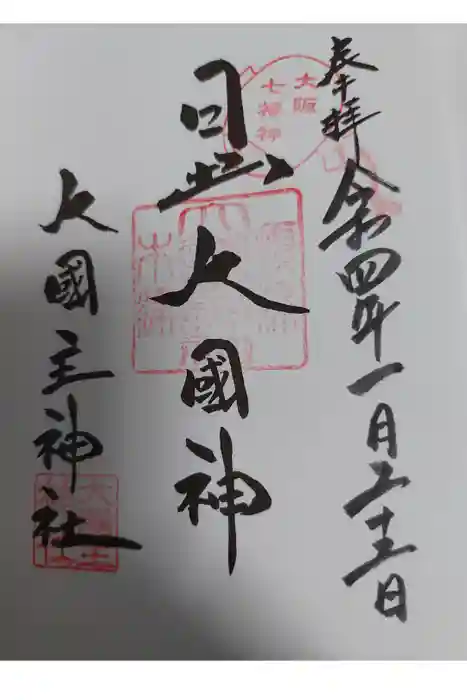 奉拝
令和四年一月二十三日
大阪
七福神
日出大國神
大國主神社